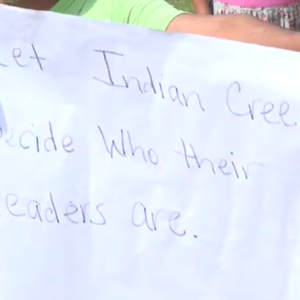 Let Indian Cree
Decide Who their
Leaders are.